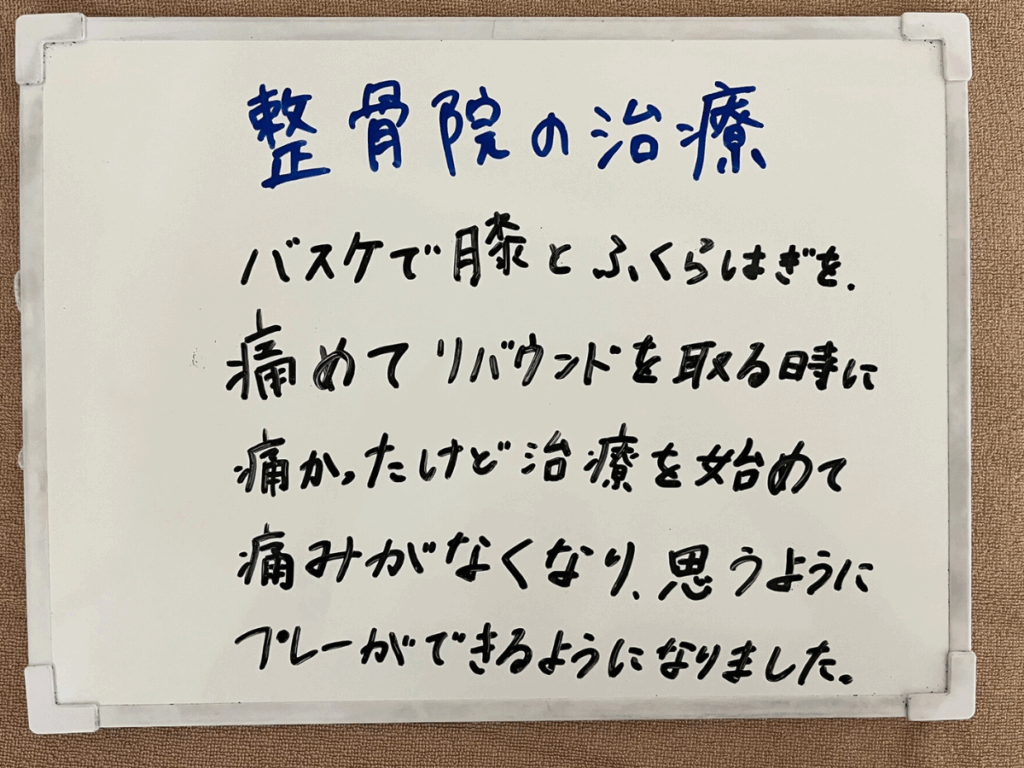 整骨院の治療
バスケで膝とふくらはぎを、
痛めてリバウンドを取る時に
痛かったけど治療を始めて
痛みがなくなり、思うように
プレーができるようになりました。